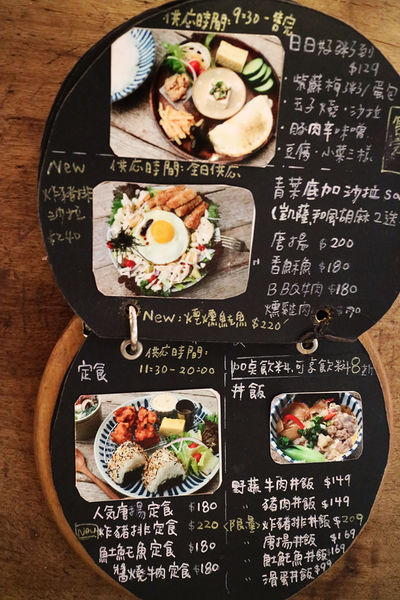 供應時間:9:30-售完
日日好粥系列
$129
·紫蘇梅粥/蛋包
·玉子燒·沙拉
·豚肉辛味噌
·豆腐·小菜三樣
New
供應時間:全日供應
炸豬排
沙拉
$240
青菜庭加沙拉
(凱薩和風胡麻2選
唐揚 $200
香魚 $180
BBQ牛肉 $180
燻雞肉 $180
New:煙燻鮭魚 $220
定食
供應時間:
11:30-20:00
100桌飲料,可享飲料8折
丼飯
人氣唐揚定食 $180
New 炸豬排定食 $220
魠魠魚定食 $180
醬燒牛肉定食 $180
野蔬牛肉丼飯 $149
〃 豬肉丼飯 $149
<限量> 炸豬排丼飯 $209
〃 唐揚丼飯 $169
〃 魠魠魚丼飯 $169
〃 滑蛋丼飯 $99